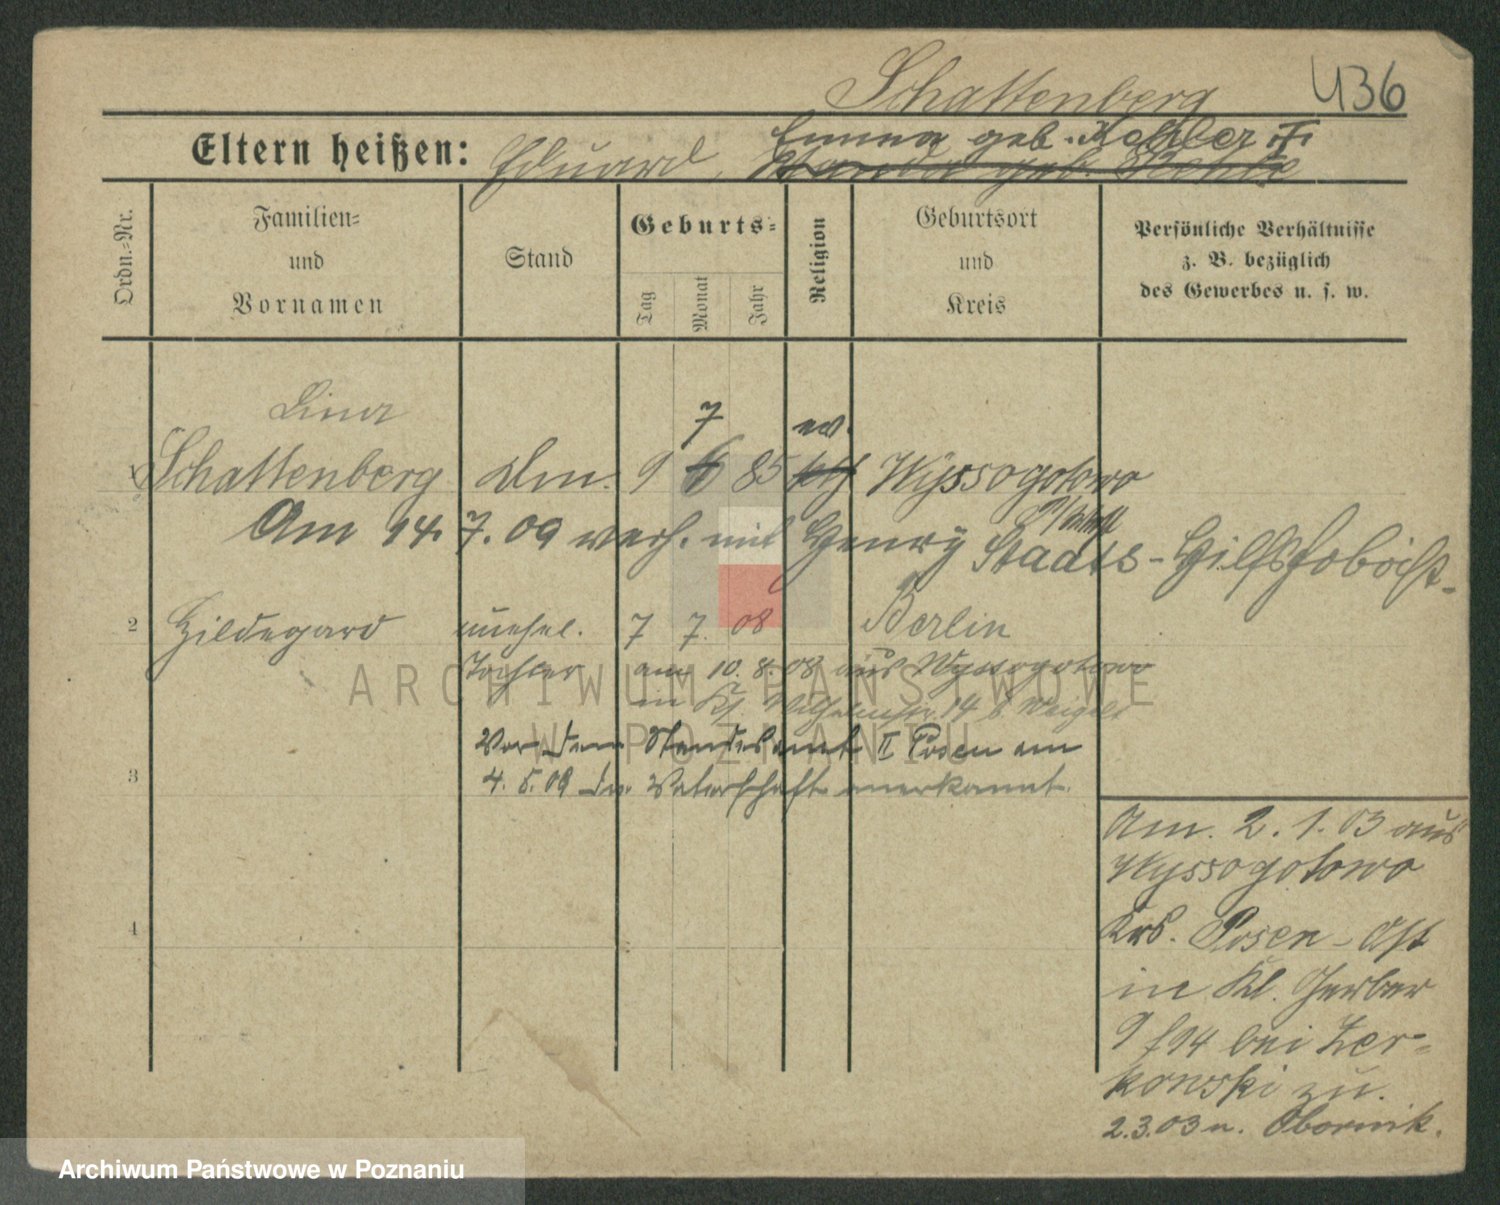 Schattenberg 436
Emma geb. Kehler
Eltern heißen: Eduard, Wanda geb.
Ordn.=Nr. Familien= und Vornamen Stand Geburts= Tag Monat Jahr Religion Geburtsort und Kreis Persönliche Verhältnisse z. B. bezüglich des Gewerbes u. s. w.
Lina 7 ev.
Schattenberg Dm. 9 6 85 kth Wyssogotowo
Am 14. 7. 09 verh. mit Henry Staats-
2 Hildegard unehel. 7 7. 08 Berlin
Tochter am 10. 8. 08 aus Wyssogotowo
in 14 b
Vor dem Standesamt II Posen am
3 4. 5. 09 die Vaterschaft anerkannt.
4
Am. 2. 1. 03 aus
Wyssogotowo
Krs. Posen-Ost
in Kl. Gerber
9/94 bei Zer=
kowski zu.
2.3.03 n. Obornik.
ARCHIWUM PAŃSTWOWE
W POZNANIU
Archiwum Państwowe w Poznaniu